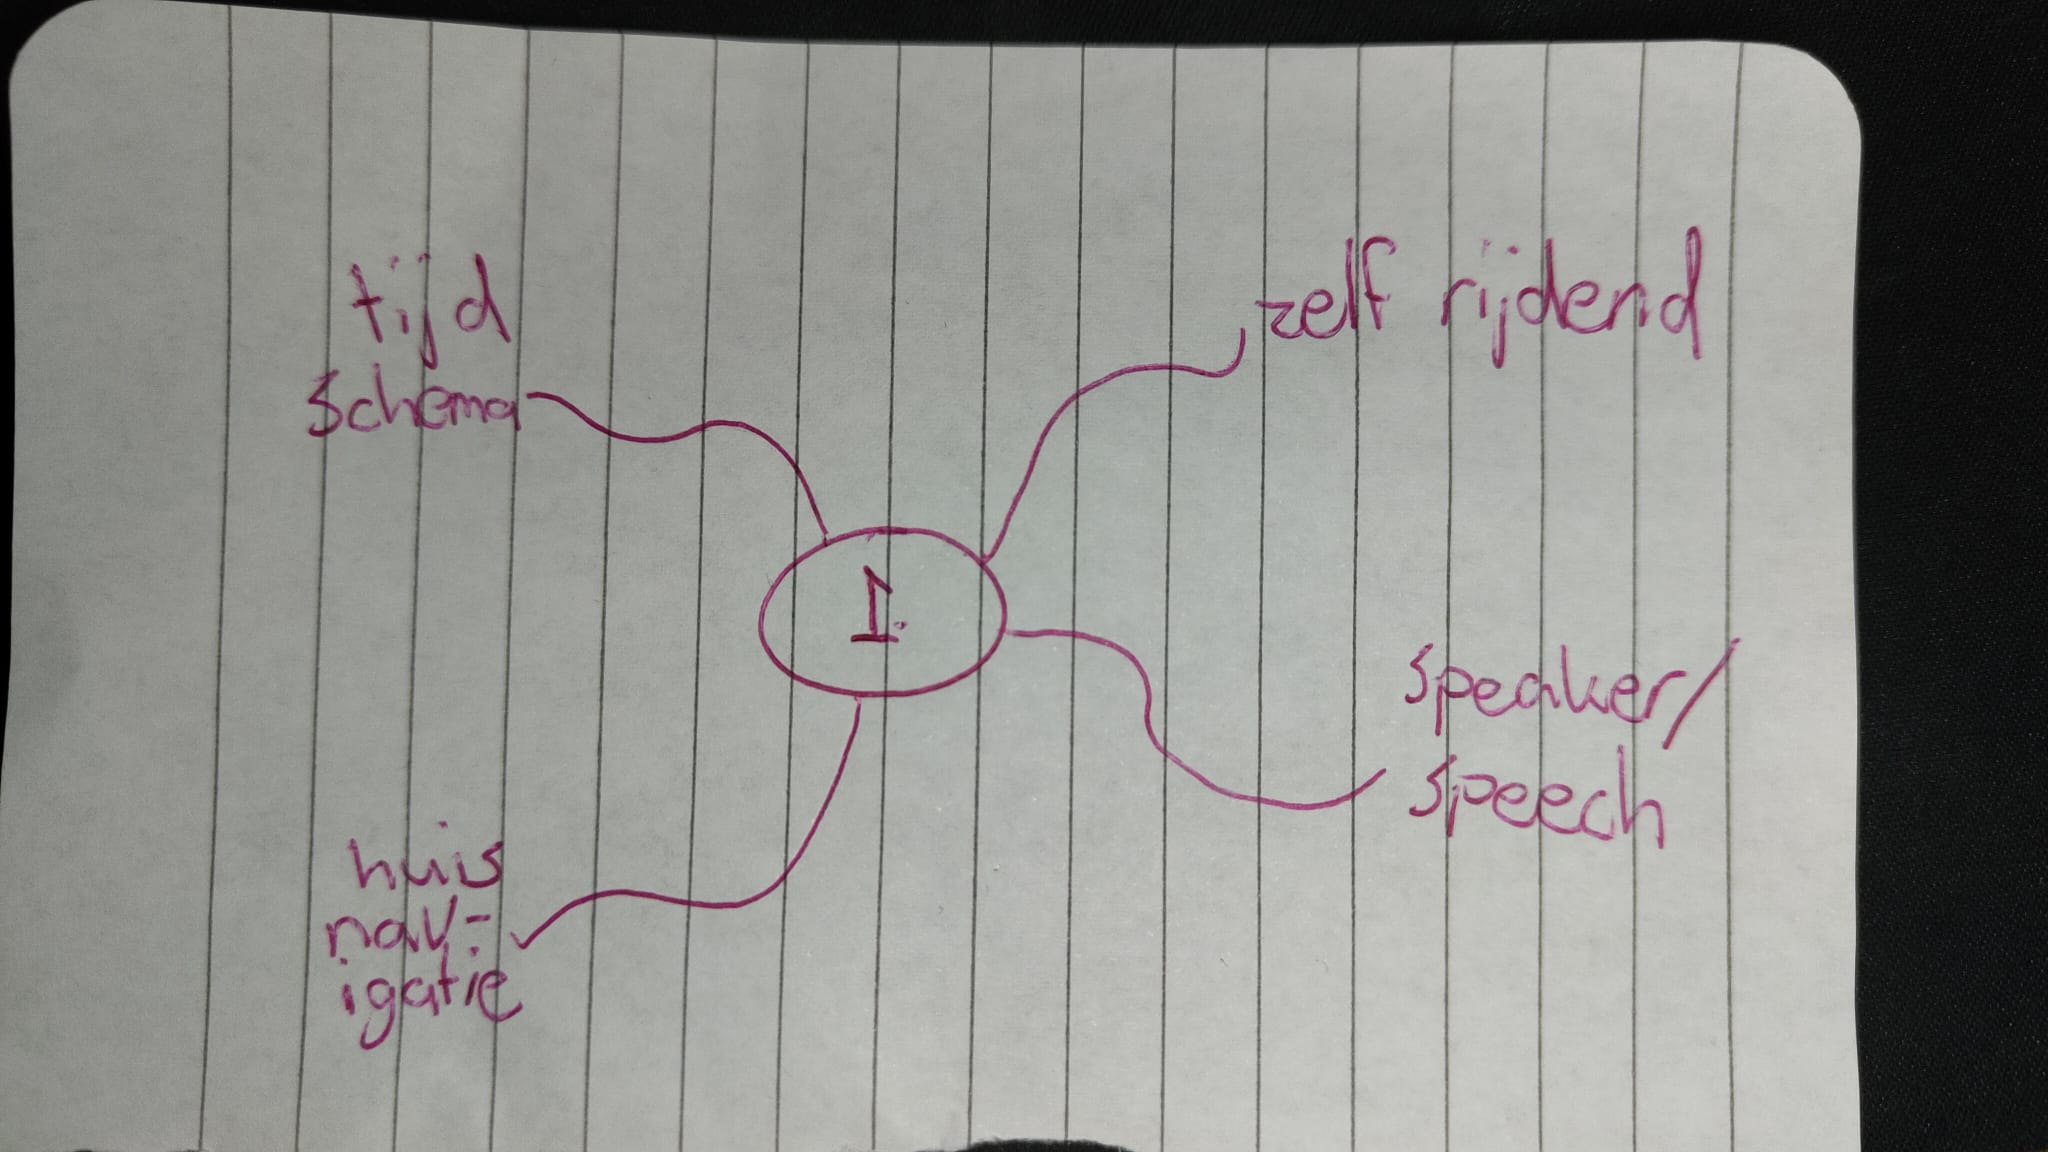 tijd
schema
zelf rijdend
1.
speaker/
speech
huis
nav-
igatie